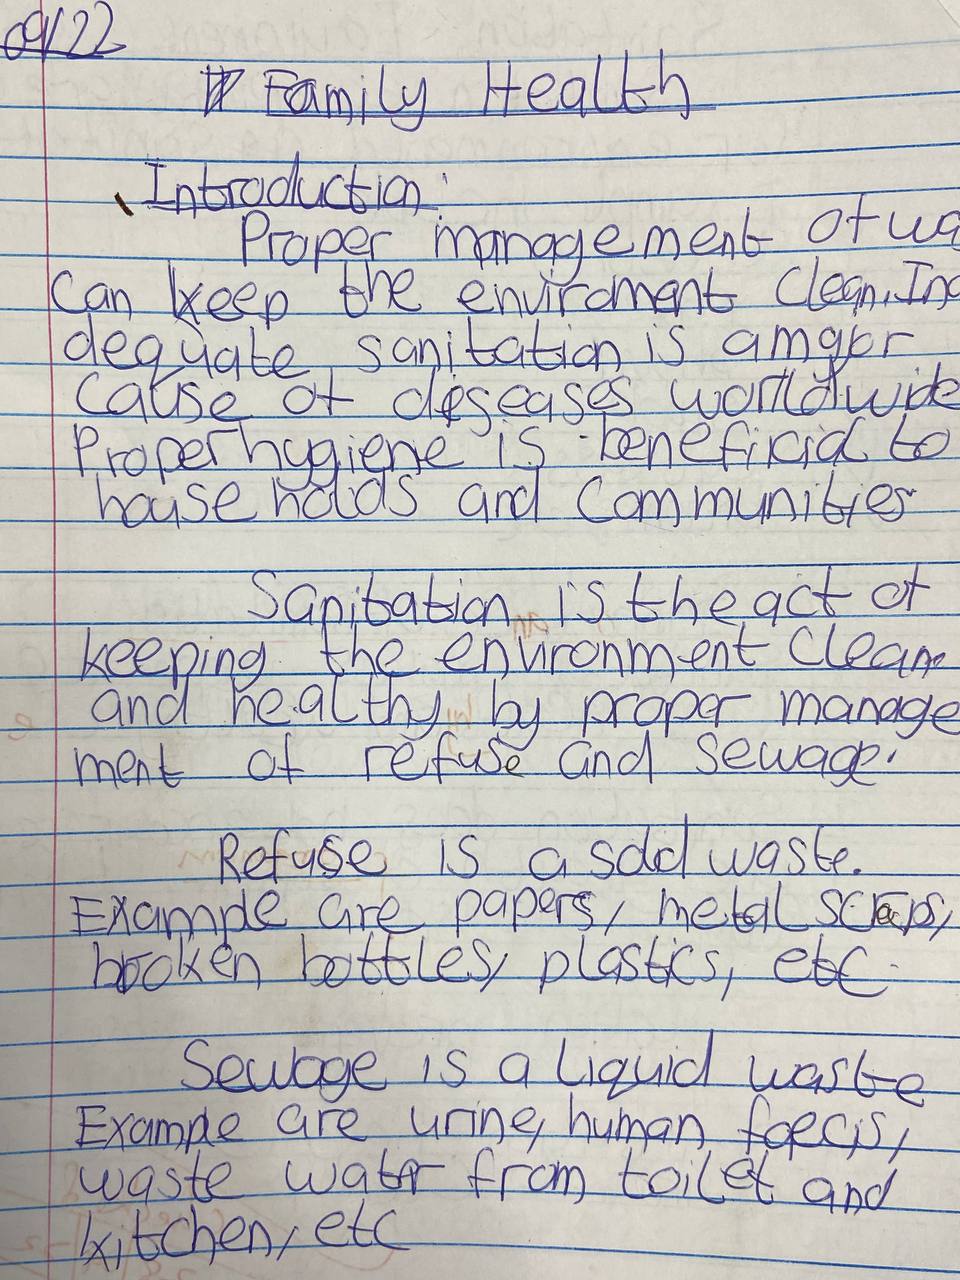 09/22
Family Health
Introduction:
Proper management of wa
can keep the enviroment clean. Ina
dequate sanitation is a major
cause of deseases worldwide
Proper hygiene is beneficial to
house holds and communities
Sanitation is the act of
keeping the environment clean
and healthy by proper manage
ment of refuse and sewage.
Refuse is a solid waste.
Example are papers, metal scraps,
broken bottles, plastics, etc.
Sewage is a liquid waste
Example are urine, human faecis,
waste water from toilet and
kitchen, etc